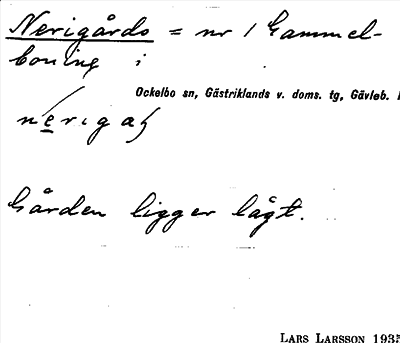 Nerigårds = nr 1 Gammel-
boning i
Ockelbo sn, Gästriklands v. doms. tg, Gävleb.
Gården ligger lågt.
LARS LARSSON 1935